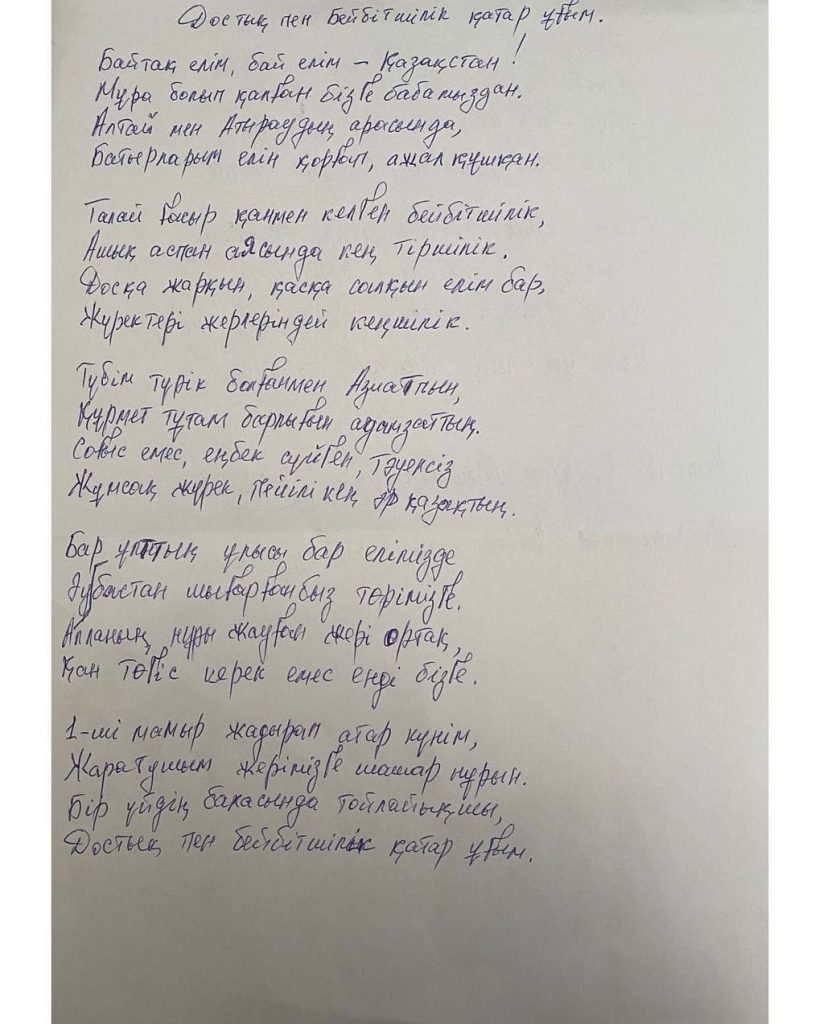 Достық пен Бейбітшілік қатар ұғым.
Байтақ елім, бай елім – Қазақстан!
Мұра болып қалған бізге бабамыздан.
Алтай мен Атыраудың арасында,
Батырларым елін қорғап, ажал құшқан.
Талай ғасыр қанмен келген бейбітшілік,
Ашық аспан аясында кең тіршілік.
Досқа жарқын, қасқа салқын елім бар,
Жүректері жерлеріндей кеңшілік.
Түбім түрік болғанмен Азиатпын,
Құрмет тұтам барлығын адамзаттың.
Соғыс емес, еңбек сүйген, тәуелсіз
Жұмсақ жүрек, пейілі кең әр қазақтың.
Бар ұлттың ұлысы бар елімізде
Әубастан шығарғанбыз төрімізге.
Алланың нұры жауған жері ортақ,
Қан төгіс керек емес енді бізге.
1-ші мамыр жадырап атар күнім,
Жаратушым жерімізге шашар нұрын.
Бір үйдің баласында тойлайықшы,
Достық пен бейбітшілік қатар ұғым.